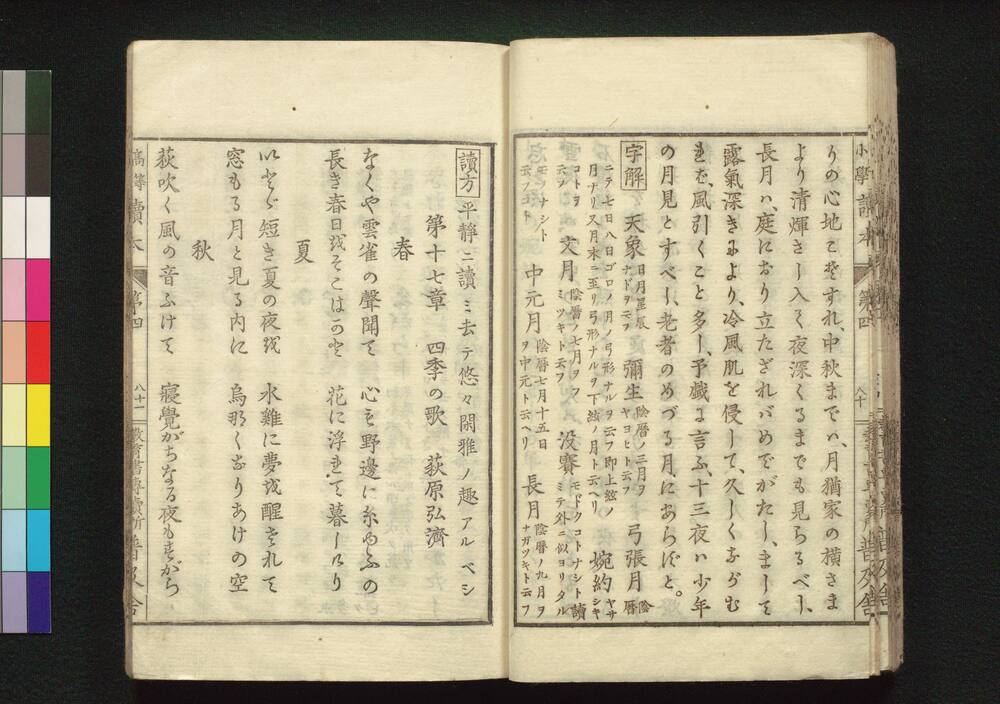 りの心地こそすれ、中秋までハ、月猶家の横さま
より清輝さし入て夜深くるまでも見らるべし、
長月ハ、庭におり立たざれバめでがたし、まして
露氣深きにより、冷風肌を侵して、久しくながむ
れば、風引くこと多し、予戯に言ふ、十三夜ハ少年
の月見とすべし、老者のめづる月にあらずと。
字解 天象 日月星辰ナドヲ云フ 彌生 陰暦ノ三月ヲヤヨヒト云フ 弓張月 陰暦
ニテ七日八日ゴロノ月ノ弓形ナルヲ云フ即上絃ノ月ナリ又月末ニ至リ弓形ナルヲ下絃ノ月ト云ヘリ 婉約 ヤサシキ
コトヲ云フ 文月 陰暦ノ七月ヲフミツキト云フ 没賽 モドクコトナシト讀ミテ外ニ似ヨリタル
モノナシト云フコト 中元月 陰暦七月十五日ヲ中元ト云ヘリ 長月 陰暦ノ九月ヲナガツキト云フ
小學讀本 第四 八十 普及舎
讀方 平靜ニ讀ミ去テ悠々閑雅ノ趣アルベシ
第十七章 四季の歌 荻原弘濟
春
なくや雲雀の聲聞て 心も野邊に糸ゆふの
長き春日をそこはかと 花に浮れて暮しけり
夏
いとゞ短き夏の夜を 水雞に夢を醒されて
窓もる月と見る内に 烏なくなりあけの空
秋
荻吹く風の音ふけて 寢覺がちなる夜もすがら
高等讀本 第四 八十一 教育書專賣所普及舎